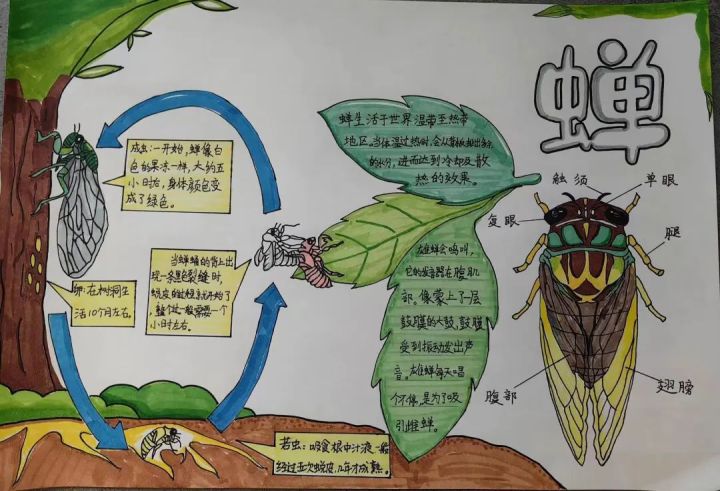 蝉
成虫:一开始,蝉像白
色的果冻一样,大约五
小时后,身体颜色变
成了绿色。
卵:在树洞生
活10个月左右。
当蝉蛹的背上出
现一条黑色裂缝时,
蜕皮的过程就开始了,
整个过一般需要一个
小时左右。
若虫:吸食根中汁液一般
经过五次蜕皮,几年才成熟。
蝉生活于世界温带至热带
地区,当体温过热时,会从
的水分,进而达到冷却及散
热的效果。
雄蝉会鸣叫,
它的发音器在腹肌
部,像蒙上了一层
鼓膜的大鼓,鼓膜
受到振动发出声
音。雄蝉每天唱
个不停,是为了吸
引雌蝉。
触须
单眼
复眼
腿
腹部
翅膀